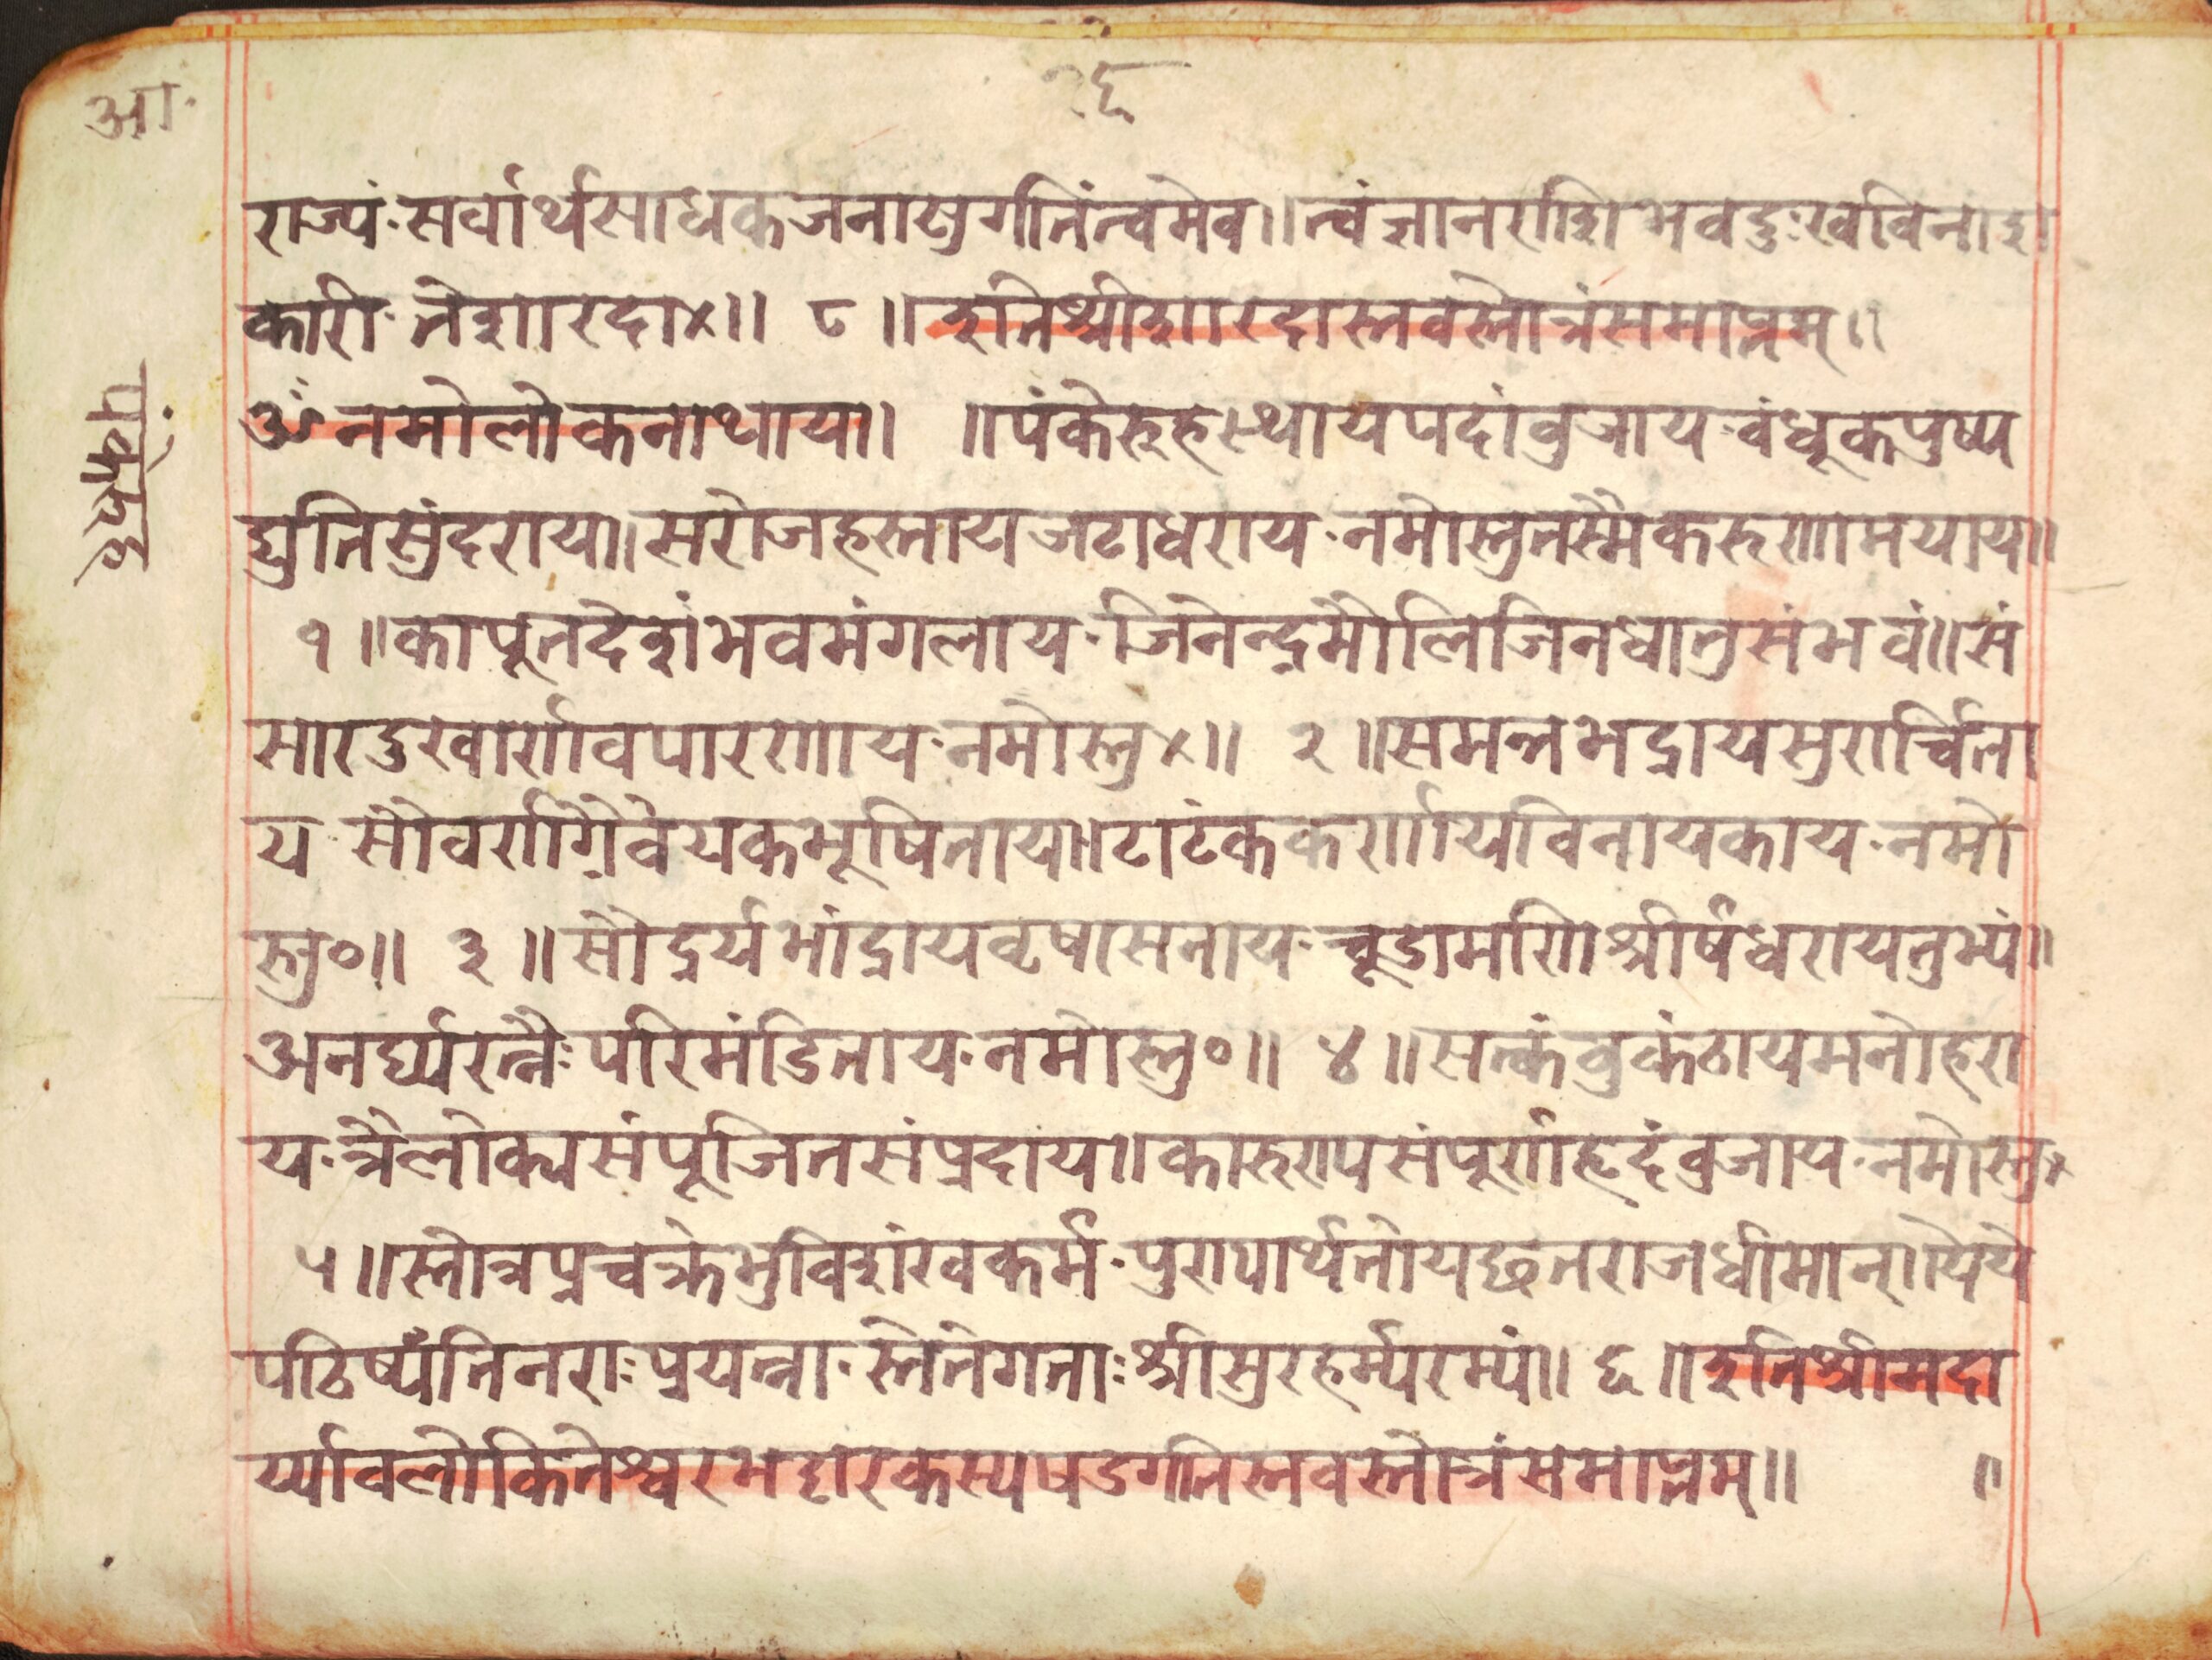 आ.
२६
राज्यं·सर्वार्थसाधकजनाशुगतिंत्वमेव॥त्वंज्ञानराशिभवदुःखविनाश
कारी·तेशारदा×॥ ८ ॥इतिश्रीशारदास्तवस्तोत्रंसमाप्तम्॥
ॐनमोलोकनाथाय॥ ॥पंकेरुहस्थायपदांबुजाय·बंधूकपुष्प
द्युतिसुंदराय॥सरोजहस्तायजटाधराय·नमोस्तुतस्मैकरुणामयाय॥
१ ॥कापूतदेशंभवमंगलाय·जिनेन्द्रमौलिजिनधातुसंभवं॥सं
सारदुखार्णवपारगाय·नमोस्तु×॥ २ ॥समन्तभद्रायसुरार्च्चिता
य·सौवर्णग्रैवेयकभूषिताय॥टाटंककर्णायविनायकाय·नमो
स्तु०॥ ३ ॥सौद्रर्यभांद्रायवृषासनाय·चूडामणिश्रीर्षधरायतुभ्यं॥
अनर्घ्यरत्नैःपरिमंडिताय·नमोस्तु०॥ ४ ॥सत्कंबुकंठायमनोहरा
य·त्रैलोक्यसंपूजितसंप्रदाय॥कारुण्यसंपूर्णहृदंबुजाय·नमोस्तु×
५ ॥स्तोत्रप्रचक्रेभुविशंखकर्म·पुण्यार्थतोयद्धतराजधीमान्॥येये
पठिष्यंतिनराःप्रयत्ना·स्तेतेगताःश्रीसुरहर्म्यरम्यं॥ ६ ॥इतिश्रीमदा
र्य्यावलोकितेश्वरभट्टारकस्यषडगतिस्तवस्तोत्रंसमाप्तम्॥ ॥
पंकेरुह